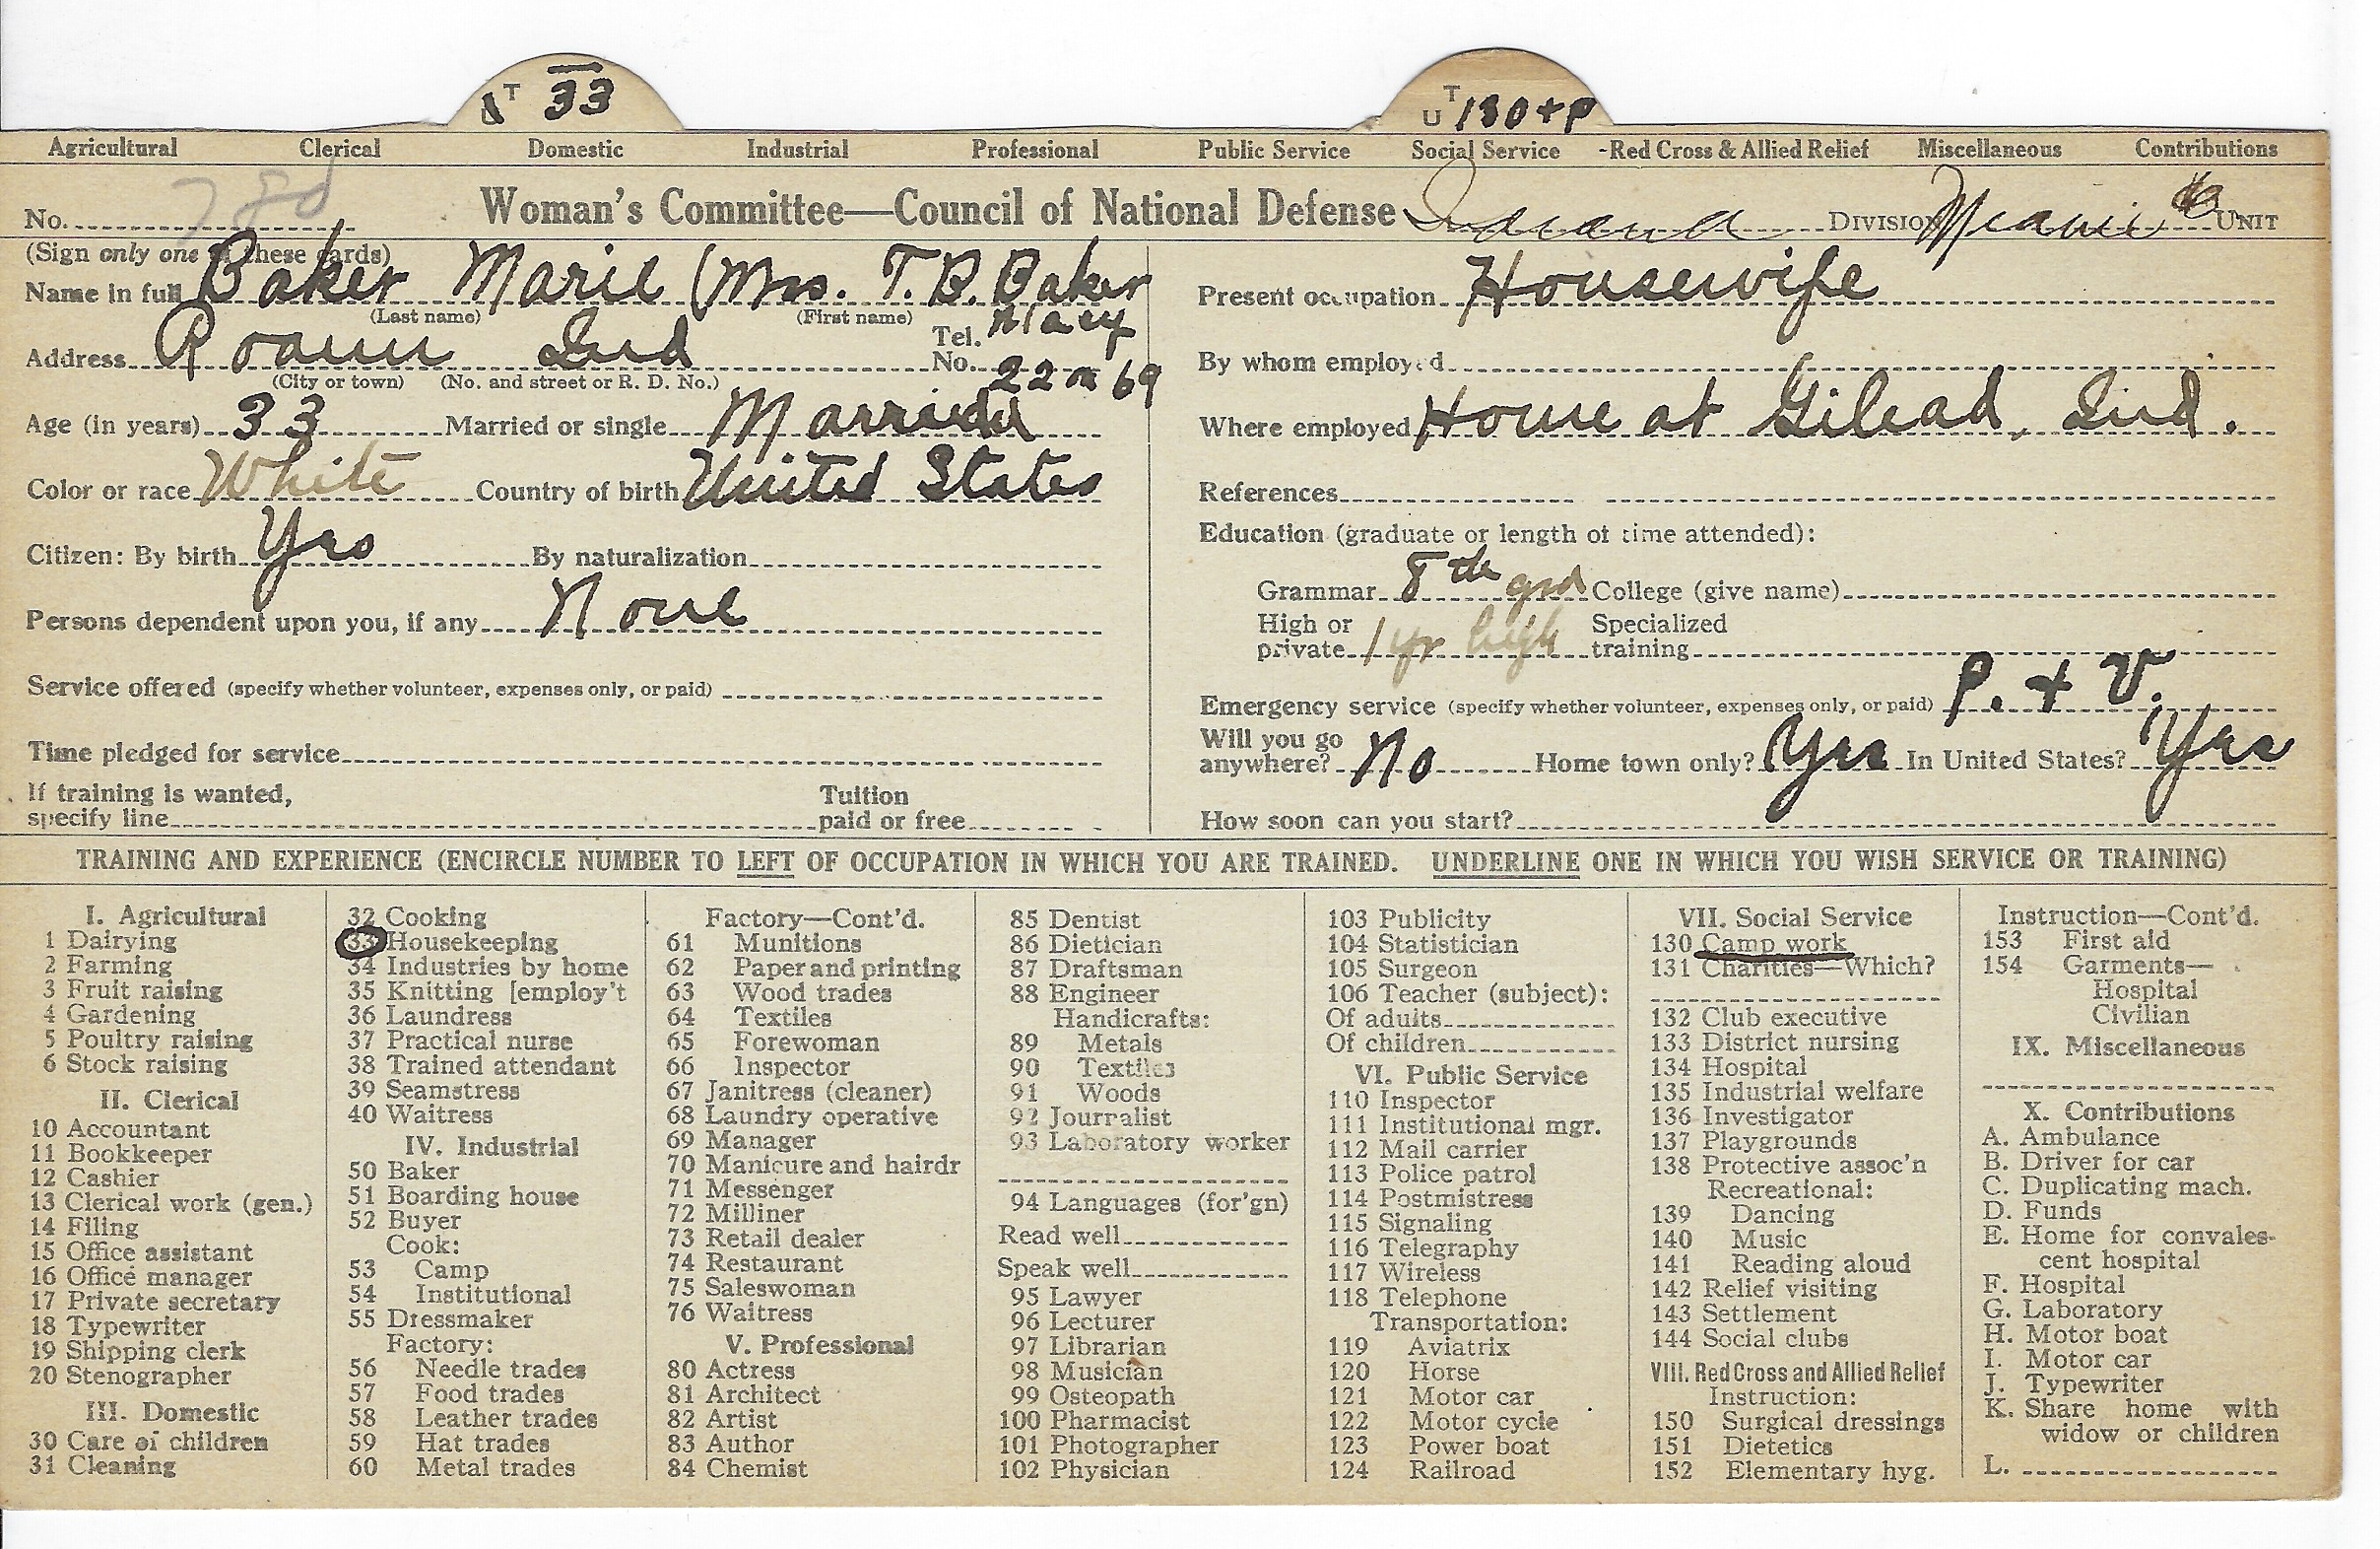 T 33
U T 130 + P
Agricultural Clerical Domestic Industrial Professional Public Service Social Service -Red Cross & Allied Relief Miscellaneous Contributions
No. 780 Woman's Committee—Council of National Defense Indiana DIVISION Miami Co UNIT
(Sign only one of these cards)
Name in full Baker Marie (Mrs. T. B. Baker
(Last name) (First name)
Address Roann Ind Tel. No. Macy 22 on 69
(City or town) (No. and street or R. D. No.)
Age (in years) 33 Married or single Married
Color or race White Country of birth United States
Citizen: By birth Yes By naturalization
Persons dependent upon you, if any None
Service offered (specify whether volunteer, expenses only, or paid)
Time pledged for service
If training is wanted, specify line Tuition paid or free
Present occupation Housewife
By whom employed
Where employed House at Gilead, Ind.
References
Education (graduate or length of time attended):
Grammar 8th grd College (give name)
High or private 1 yr high Specialized training
Emergency service (specify whether volunteer, expenses only, or paid) P. + V.
Will you go anywhere? No Home town only? Yes In United States? Yes
How soon can you start?
TRAINING AND EXPERIENCE (ENCIRCLE NUMBER TO LEFT OF OCCUPATION IN WHICH YOU ARE TRAINED. UNDERLINE ONE IN WHICH YOU WISH SERVICE OR TRAINING)
I. Agricultural
1 Dairying
2 Farming
3 Fruit raising
4 Gardening
5 Poultry raising
6 Stock raising
II. Clerical
10 Accountant
11 Bookkeeper
12 Cashier
13 Clerical work (gen.)
14 Filing
15 Office assistant
16 Office manager
17 Private secretary
18 Typewriter
19 Shipping clerk
20 Stenographer
III. Domestic
30 Care of children
31 Cleaning
32 Cooking
33 Housekeeping
34 Industries by home
35 Knitting [employ't
36 Laundress
37 Practical nurse
38 Trained attendant
39 Seamstress
40 Waitress
IV. Industrial
50 Baker
51 Boarding house
52 Buyer
Cook:
53 Camp
54 Institutional
55 Dressmaker
Factory:
56 Needle trades
57 Food trades
58 Leather trades
59 Hat trades
60 Metal trades
Factory—Cont'd.
61 Munitions
62 Paper and printing
63 Wood trades
64 Textiles
65 Forewoman
66 Inspector
67 Janitress (cleaner)
68 Laundry operative
69 Manager
70 Manicure and hairdr
71 Messenger
72 Milliner
73 Retail dealer
74 Restaurant
75 Saleswoman
76 Waitress
V. Professional
80 Actress
81 Architect
82 Artist
83 Author
84 Chemist
85 Dentist
86 Dietician
87 Draftsman
88 Engineer
Handicrafts:
89 Metals
90 Textiles
91 Woods
92 Journalist
93 Laboratory worker
94 Languages (for'gn)
Read well
Speak well
95 Lawyer
96 Lecturer
97 Librarian
98 Musician
99 Osteopath
100 Pharmacist
101 Photographer
102 Physician
103 Publicity
104 Statistician
105 Surgeon
106 Teacher (subject):
Of adults
Of children
VI. Public Service
110 Inspector
111 Institutional mgr.
112 Mail carrier
113 Police patrol
114 Postmistress
115 Signaling
116 Telegraphy
117 Wireless
118 Telephone
Transportation:
119 Aviatrix
120 Horse
121 Motor car
122 Motor cycle
123 Power boat
124 Railroad
VII. Social Service
130 Camp work
131 Charities—Which?
132 Club executive
133 District nursing
134 Hospital
135 Industrial welfare
136 Investigator
137 Playgrounds
138 Protective assoc'n
Recreational:
139 Dancing
140 Music
141 Reading aloud
142 Relief visiting
143 Settlement
144 Social clubs
VIII. Red Cross and Allied Relief
Instruction:
150 Surgical dressings
151 Dietetics
152 Elementary hyg.
Instruction—Cont'd.
153 First aid
154 Garments—
Hospital
Civilian
IX. Miscellaneous
X. Contributions
A. Ambulance
B. Driver for car
C. Duplicating mach.
D. Funds
E. Home for convales-
cent hospital
F. Hospital
G. Laboratory
H. Motor boat
I. Motor car
J. Typewriter
K. Share home with
widow or children
L.